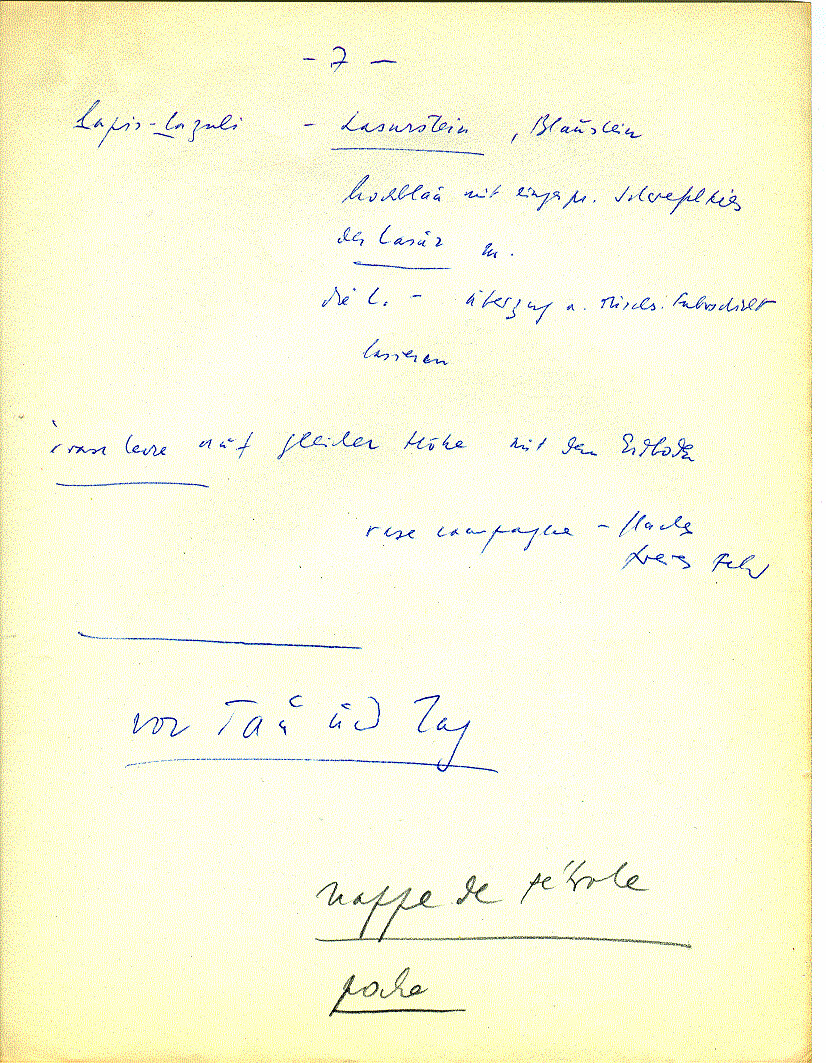 - 7 -
Lapis-lazuli - Lasurstein, Blaustein
hochblau mit eingespr. Schwefelkies
der Lasur
die L. - Überzug a. durchs. Farbschicht
lasieren
rase terre auf gleicher Höhe mit dem Erdboden
rase campagne - flaches
freies Feld
vor Tau und Tag
nappe de pétrole
poche